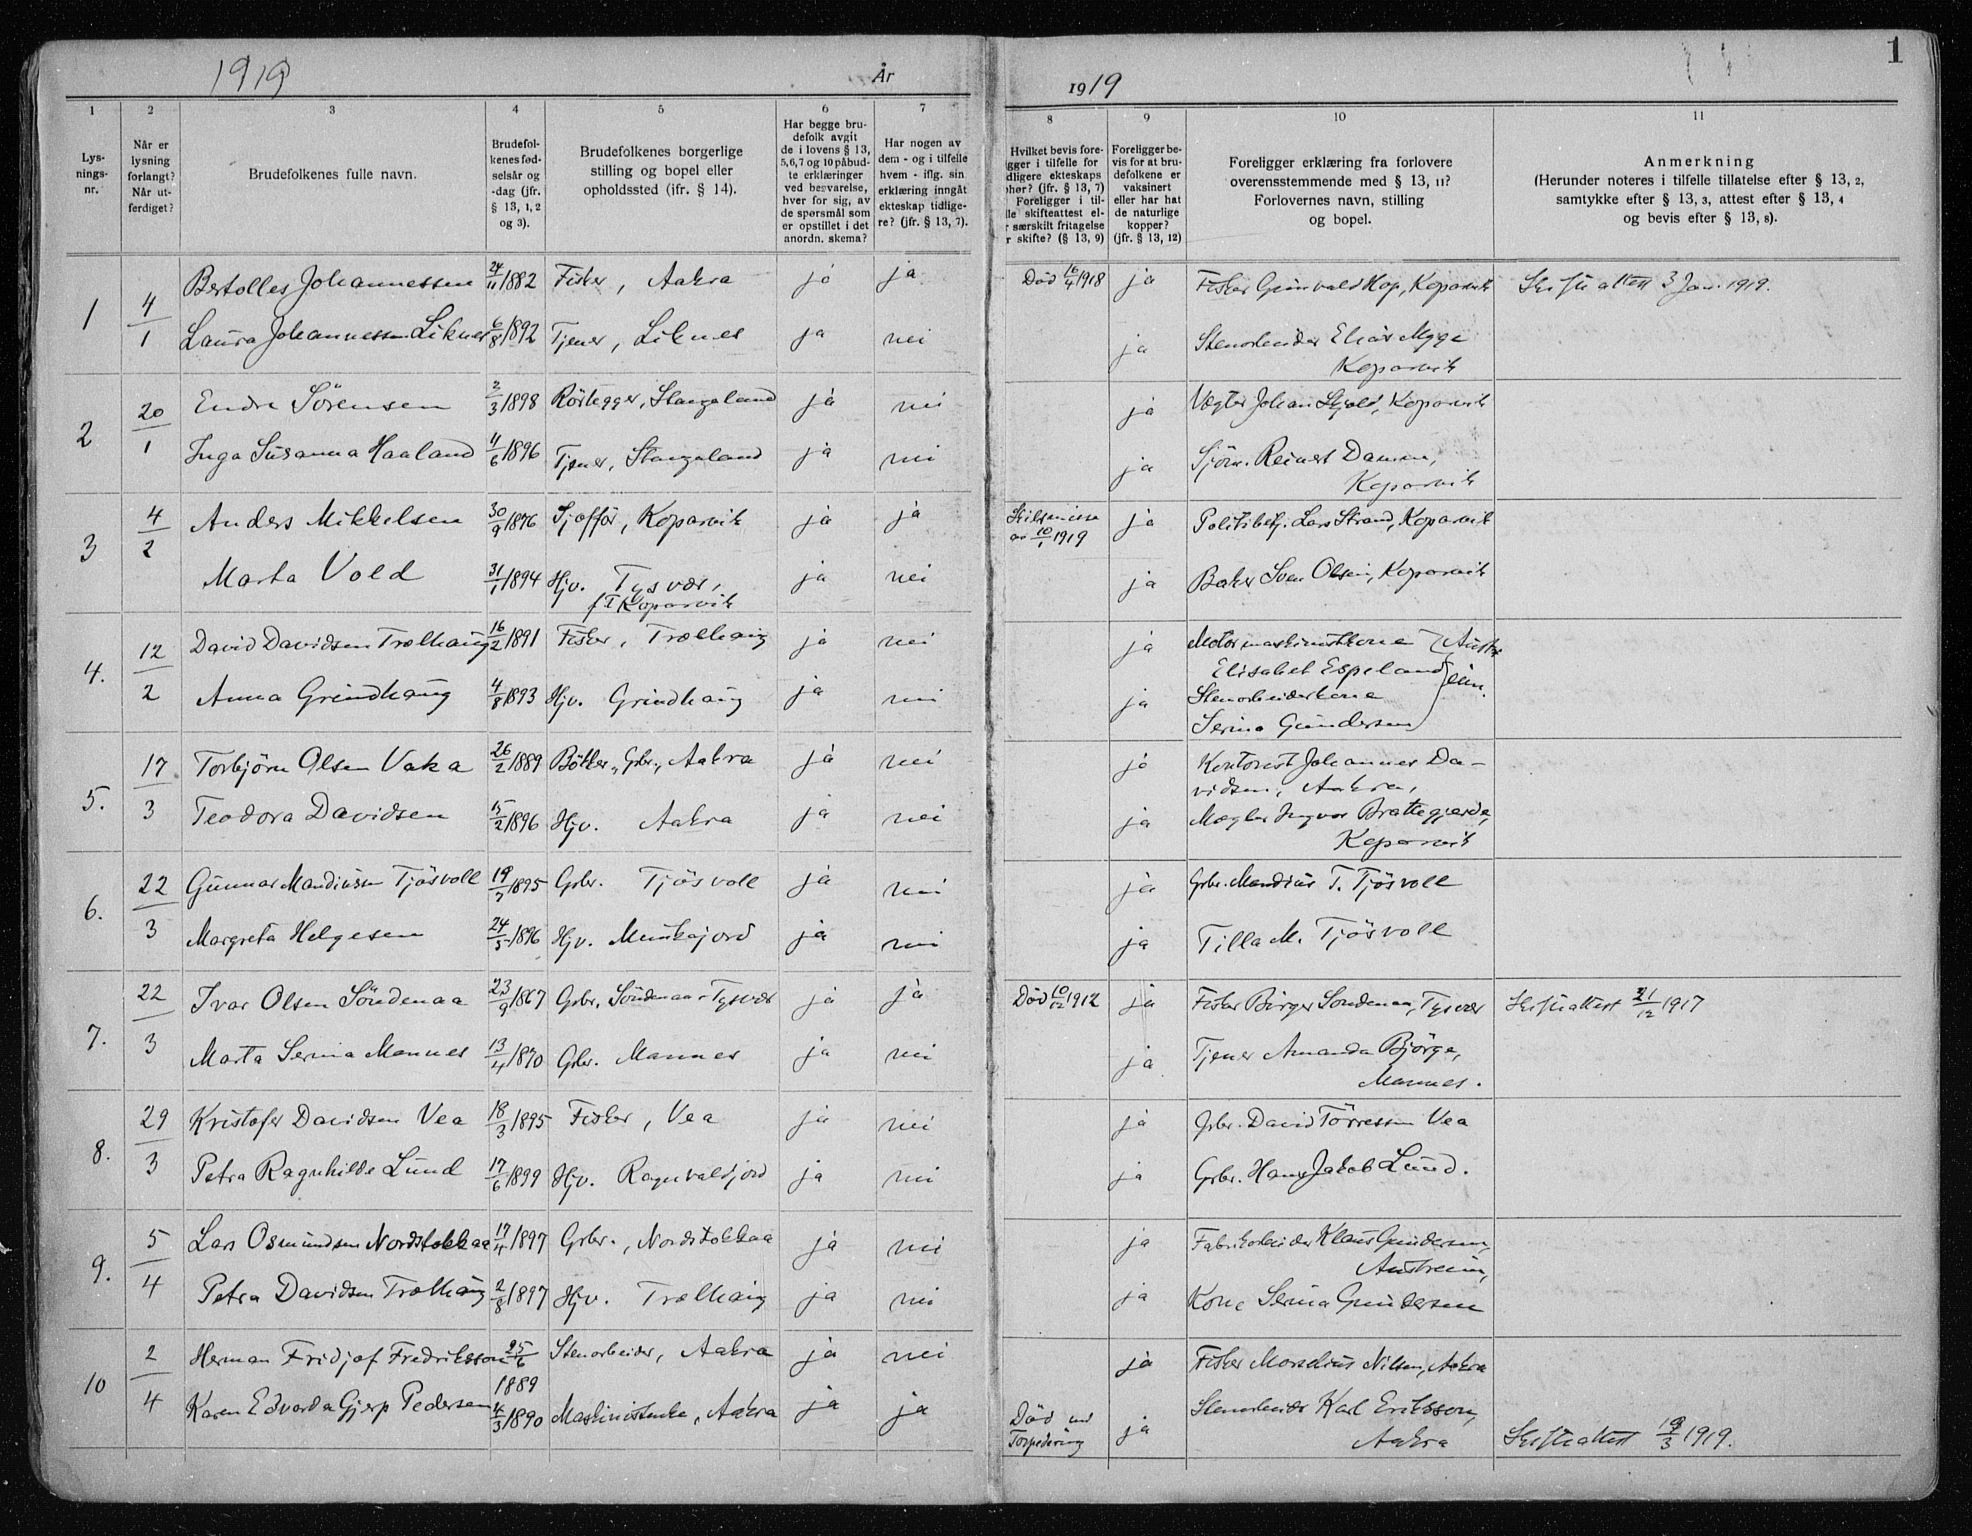 1919 År 1919 1
1 2 3 4 5 6 7 8 9 10 11
Lys-
nings-
nr.
Når er
lysning
forlangt?
Når ut-
ferdiget?
Brudefolkenes fulle navn.
Brudefol-
kenes fød-
selsår og
-dag (jfr.
§ 13, 1, 2
og 3).
Brudefolkenes borgerlige
stilling og bopel eller
opholdssted (jfr. § 14).
Har begge bru-
defolk avgit
de i lovens § 13,
5,6,7 og 10 påbud-
te erklæringer
ved besvarelse,
hver for sig, av
de spørsmål som
er opstillet i det
anordn. skema?
Har nogen av
dem - og i tilfelle
hvem - iflg. sin
erklæring inngåt
ekteskap tidlige-
re? (jfr. § 13, 7).
Hvilket bevis fore-
gger i tilfelle for
dligere ekteskaps
phør? (jfr. § 13, 7)
Foreligger i til-
lle skifteattest el-
r særskilt fritagelse
r skifte? (§ 13, 9)
Foreligger be-
vis for at bru-
defolkene er
vaksinert
eller har hat
de naturlige
kopper?
(jfr. § 13, 12)
Foreligger erklæring fra forlovere
overensstemmende med § 13, 11?
Forlovernes navn, stilling
og bopel.
Anmerkning
(Herunder noteres i tilfelle tillatelse efter § 13, 2,
samtykke efter § 13, 3, attest efter § 13, 4
og bevis efter § 13, 8).
1 4/1 Bertolles Johannessen 24/11 1882 Fisker, Aakra ja ja Død 16/4 1918 ja Fisker Gunvald Hop, Kopervik Skifteattest 3 Jan. 1919.
Laura Johannessen Liknes 6/8 1892 Tjener, Liknes ja nei ja Stenarbeider Elias Myge
Kopervik
2 20/1 Endre Sörensen 2/3 1898 Rörlegger, Stangeland ja nei ja Vægter Johan Skjold, Kopervik
Inga Susanna Haaland 4/6 1896 Tjener, Stangeland ja nei ja Sjöm. Reinert Damm,
Kopervik
3 4/2 Anders Mikkelsen 30/9 1876 Sjafför, Kopervik ja ja Skilsmisse
av 10/1 1919 ja Politibetj. Lars Strand, Kopervik
Marta Vold 31/1 1894 Hjv. Tysvær,
f T Kopervik ja nei ja Baker Sven Olsen, Kopervik
4. 12/2 David Davidsen Trælhaug 16/2 1891 Fisker, Trælhaug ja nei ja Motormaskinistkone
Elisabet Espeland
Anna Grindhaug 4/8 1893 Hjv. Grindhaug ja nei ja Stenarbeiderkone
Serina Gundersen
Austr
eim.
5. 17/3 Torbjörn Olsen Vaka 26/2 1889 Bötker, Grbr., Aakra ja nei ja Kontorist Johannes Da-
vidsen, Aakra,
Teodora Davidsen 15/2 1896 Hjv. Aakra ja nei ja Mægler Ingvar Brattegjerde,
Kopervik
6. 22/3 Gunnar Mandiussen Tjösvoll 19/7 1895 Grbr. Tjösvoll ja nei ja Grbr. Mandius T. Tjösvoll
Margreta Helgesen 24/5 1896 Hjv. Munkajord ja nei ja Tilla M. Tjösvoll
7. 22/3 Ivar Olsen Söndenaa 23/9 1867 Grbr. Söndenaa - Tysvær ja ja Död 10/12 1912 ja Fisker Birger Sondenaa, Tysvær Skifteattest 21/12 1917
Marta Serina Mannes 13/4 1870 Grbr. Mannes ja nei ja Tjener Amanda Björge,
Mannes.
8. 29/3 Kristofer Davidsen Vea 18/3 1895 Fisker, Vea ja nei ja Grbr. David Törressen Vea
Petra Ragnhilde Lund 17/6 1899 Hjv. Ragnvaldjord ja nei ja Grbr. Hans Jakob Lund.
9. 5/4 Lars Osmundsen Nordstokkaa 17/4 1897 Grbr., Nordstokkaa ja nei ja Fabrikarbeider Klaus Gundersen,
Austreim,
Petra Davidsen Trælhaug 2/8 1897 Hjv. Trælhaug ja nei ja Kone Serina Gundersen
10 2/4 Herman Fridjof Fredriksson 25/6
1889 Stenarbeider, Aakra ja nei ja Fisker Marselius Nilsen, Aakra
Karen Edvarda Gjerp Pedersen 4/3 1890 Maskinistenke, Aakra ja ja Död ved
Torpedering ja Stenarbeider Karl Eriksson,
Aakra Skifteattest 19/3 1919.